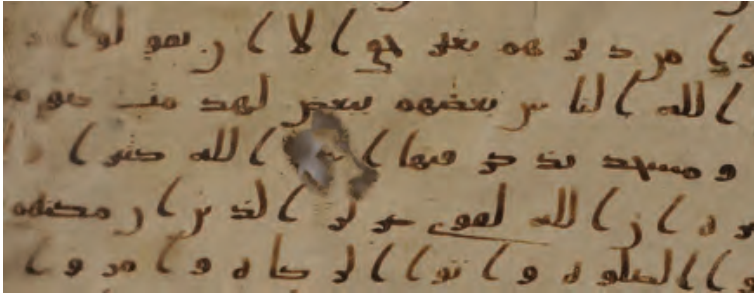 وا من ديرهم بغير حق الا ان يقولوا
الله الناس بعضهم ببعض لهدمت صومع
ومسجد يذكر فيها اسم الله كثيرا
ان الله لقوى عزيز الذين ان مكنهم
وا الصلوه واتوا الزكاه وامروا